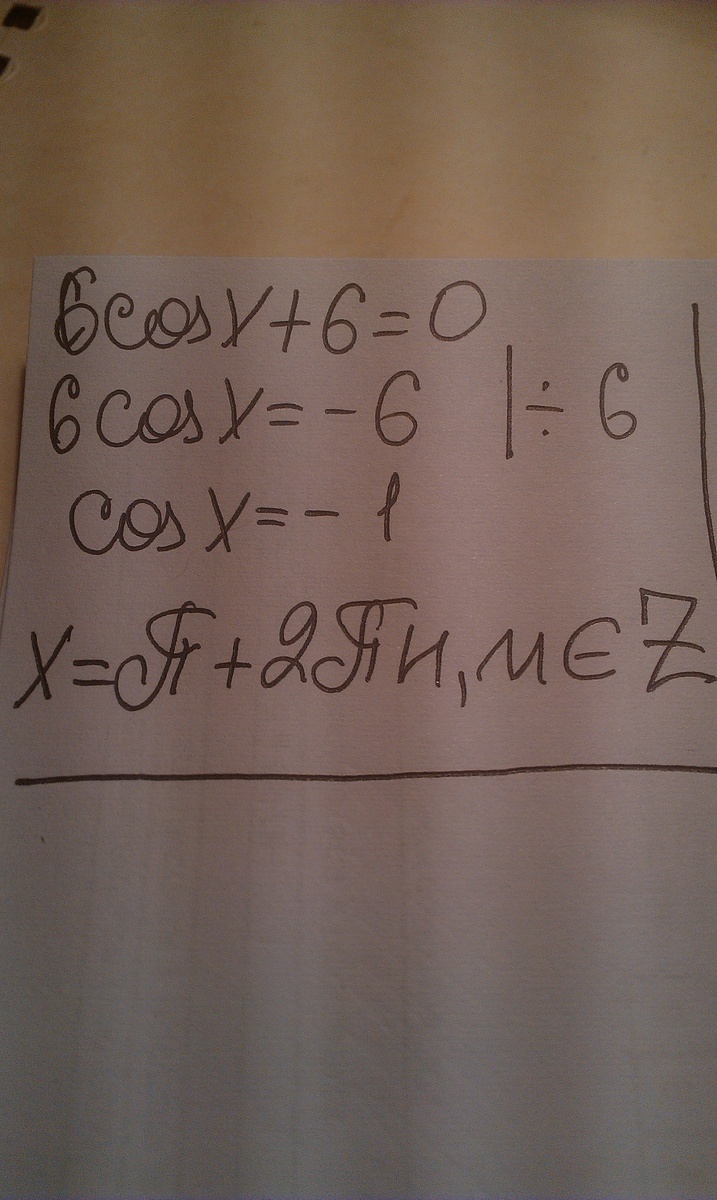 6cosx+6=0
6cosx=-6 |÷6
cosx=-1
x=π+2πn, n∈Z